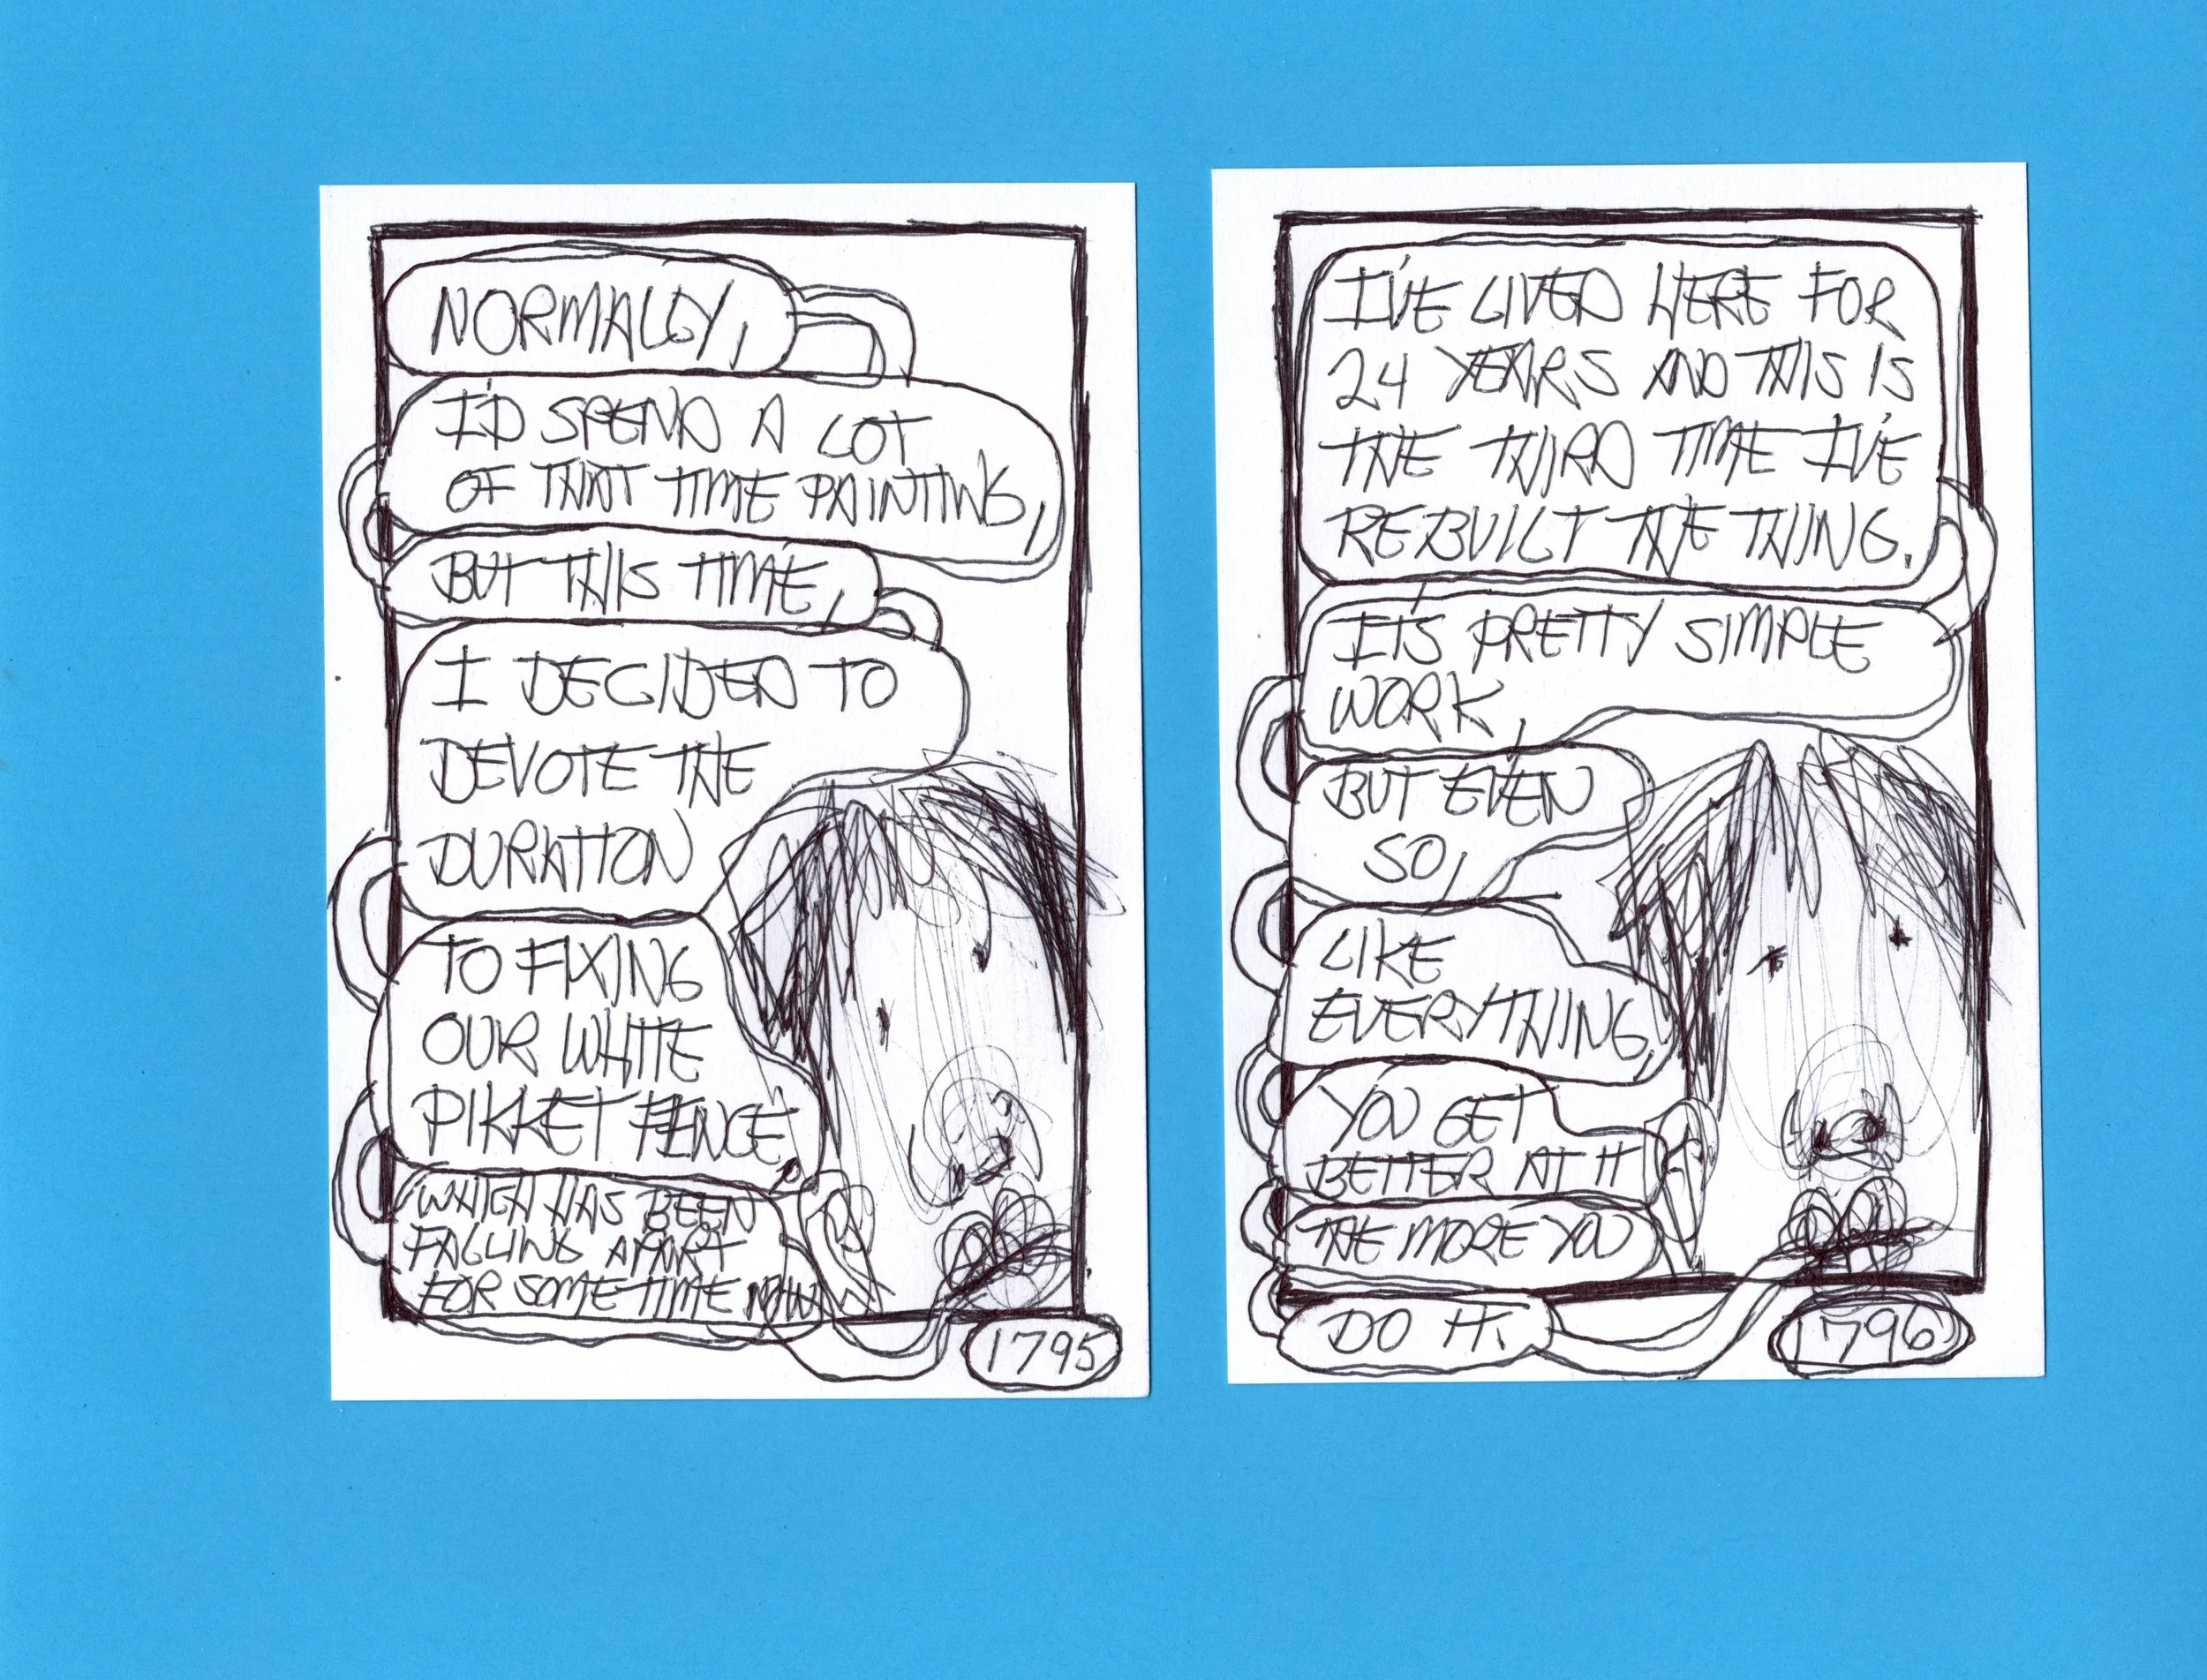 NORMALLY,
I'D SPEND A LOT
OF THAT TIME PAINTING,
BUT THIS TIME,
I DECIDED TO
DEVOTE THE
DURATION
TO FIXING
OUR WHITE
PIKKET FENCE,
WHICH HAS BEEN
FALLING APART
FOR SOME TIME NOW.
1795
I'VE LIVED HERE FOR
24 YEARS AND THIS IS
THE THIRD TIME I'VE
REBUILT THE THING.
IT'S PRETTY SIMPLE
WORK,
BUT EVEN
SO,
LIKE
EVERYTHING,
YOU GET
BETTER AT IT
THE MORE YOU
DO IT.
1796